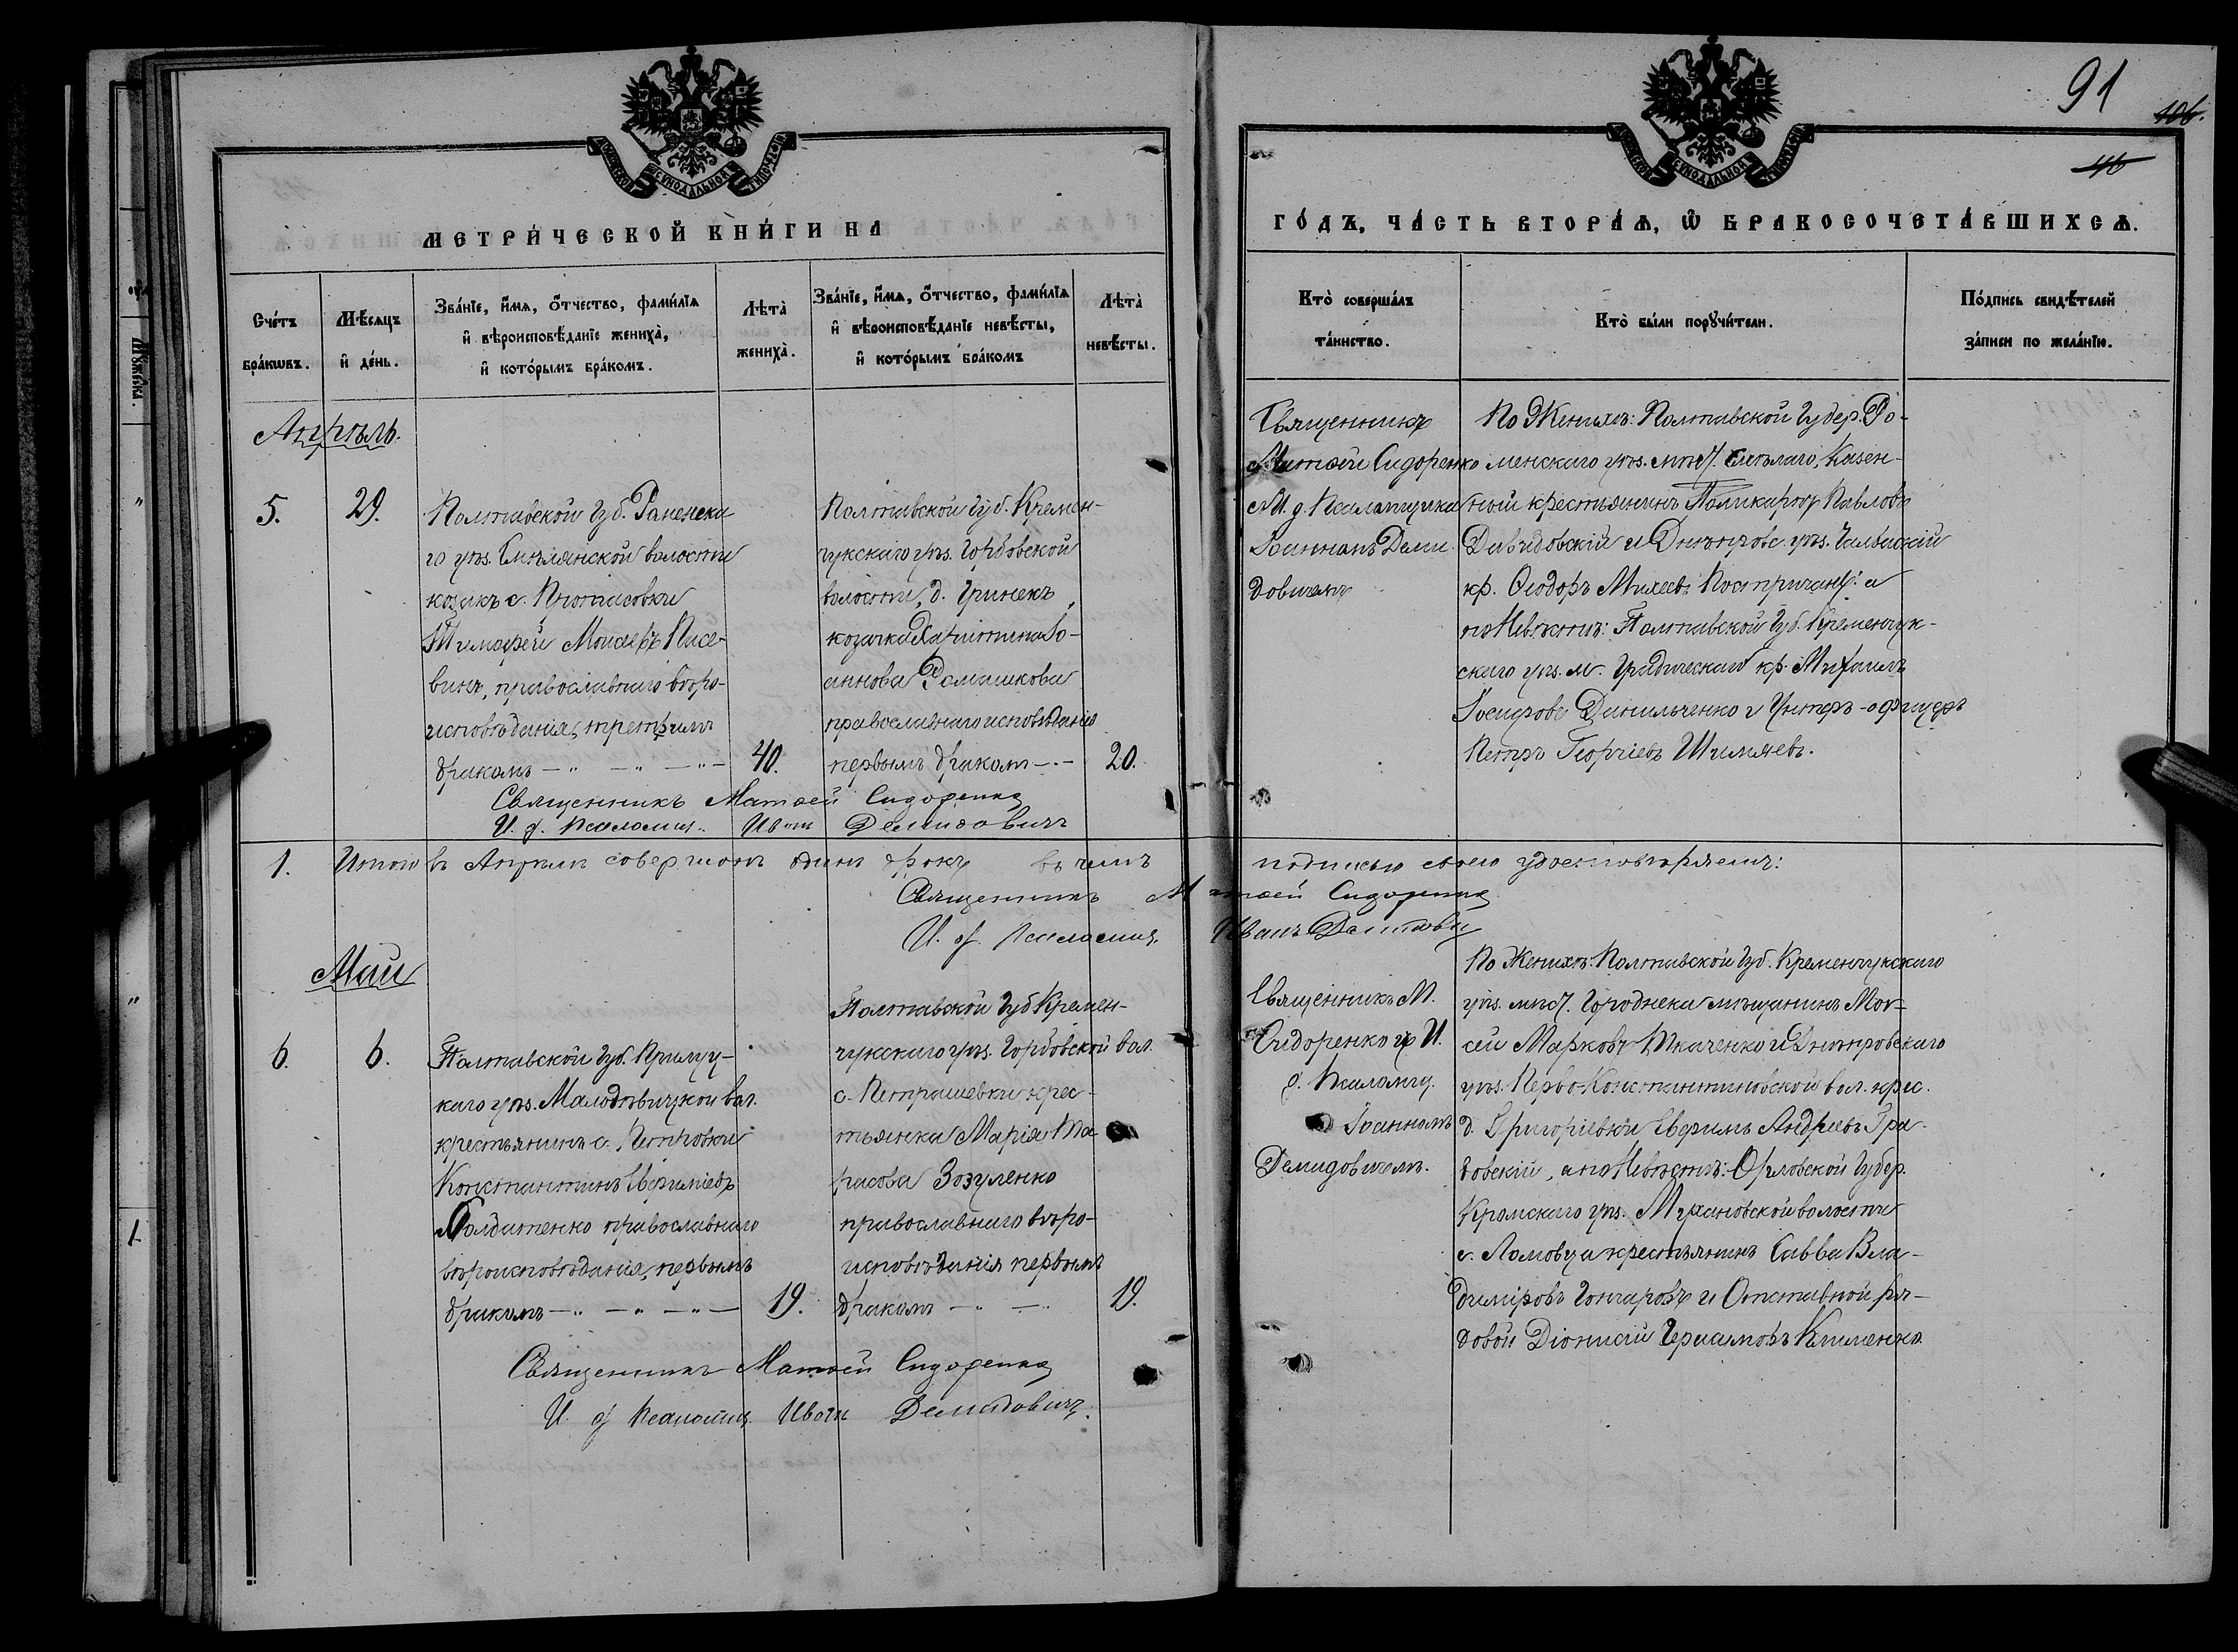 91
106.
46
МЕТРИ́ЧЕСКОЙ КНИ́ГИ НА
ГО́ДЪ, ЧА́СТЬ ВТОРА́Ѧ, Ѿ БРАКОСОЧЕТА́ВШИХСѦ.
Сче́тъ бра́кѡвъ.
Мѣ́сѧцъ и҆ де́нь.
Зва́нїе, и҆́мѧ, ѻ҆́тчество, фамѝлїѧ
и҆ вѣроисповѣ́данїе жениха̀,
и҆ кото́рымъ бра́комъ.
Лѣта̀
жениха̀.
Зва́нїе, и҆́мѧ, ѻ҆́тчество, фамѝлїѧ
и҆ вѣроисповѣ́данїе невѣ́сты,
и҆ кото́рымъ бра́комъ
Лѣта̀
невѣ́сты.
Кто̀ соверша́лъ
та́инство.
Кто̀ бы́ли порꙋчи́тели.
По́дпись свидѣ́телей
за́писи по жела́нїю.
Апрѣль.
5.
29.
Полтавской Губ. Раменска
го уѣз. Смѣлянской волости
козакъ с. Протасовки
Тимофей Моисеевъ Писе-
винъ, православнаго вѣро-
исповѣданія, третьимъ
бракомъ
40.
Полтавской Губ. Кремен-
чукскаго уѣз. Горбовской
волости, д. Гринекъ
козачка Харитина Іо-
аннова Ромашкова
православнаго исповѣданія
первымъ бракомъ
20.
Священникъ
Матѳей Сидоренко
И. д. Псаломщика
Іоанномъ Деми
довичемъ
По Женихѣ: Полтавской Губер. Ро-
менскаго уѣз. мѣст. Смѣлаго, Казен-
ный крестьянинъ Поликарпъ Павловъ
Давидовскій и Днѣпров. уѣз. Чалбаскій
кр. Ѳеодоръ Михеевъ Костричанъ: а
по Невѣстѣ: Полтавской Губ. Кременчук-
скаго уѣз. м. Градическаго кр. Михаилъ
Іосифовъ Данильченко и Унтеръ-офицеръ
Петръ Георгіевъ Шимяевъ.
Священникъ Матѳей Сидоренко
И. д. Псаломщ. Иванъ Демидовичъ
1.
Итого въ Апрѣлѣ совершонъ одинъ бракъ въ чемъ подписью своею удостовѣряемъ:
Священникъ Матѳей Сидоренко
И. д. Псаломщ. Иванъ Демидови
Май
6.
6.
Полтавской Губ. Прилуц-
каго уѣз. Малодѣвицкой вол.
крестьянинъ с. Петровки
Константинъ Евфиміевъ
Солдатенко православнаго
вѣроисповѣданія, первымъ
бракомъ
19.
Полтавской Губ Кремен-
чукскаго уѣз. Горбовской вол.
с. Петрашевки крес-
тьянка Марія Та
расова Зозуленко
православнаго вѣро-
исповѣданія первымъ
бракомъ
19.
Священникъ М.
Сидоренко и И.
д. Псаломщ.
Іоанномъ
Демидовичемъ.
По Женихѣ: Полтавской Губ. Кременчукскаго
уѣз. мѣст. Городнека мѣщанинъ Мои-
сей Марковъ Ткаченко и Днѣпровскаго
уѣз. Перво-Константиновской вол. крес.
д. Григоріевки Евфимъ Андреевъ Гра-
бовскій, а по Невѣстѣ: Орловской Губер.
Кромскаго уѣз. Мухановской волости
с. Ломовца крестьянинъ Савва Вла-
диміровъ Гончаровъ и Отставной ря-
довой Діонисій Чершамовъ Клименко.
Священникъ Матѳей Сидоренко
И. д. Псаломщ. Иванъ Демидовичъ.